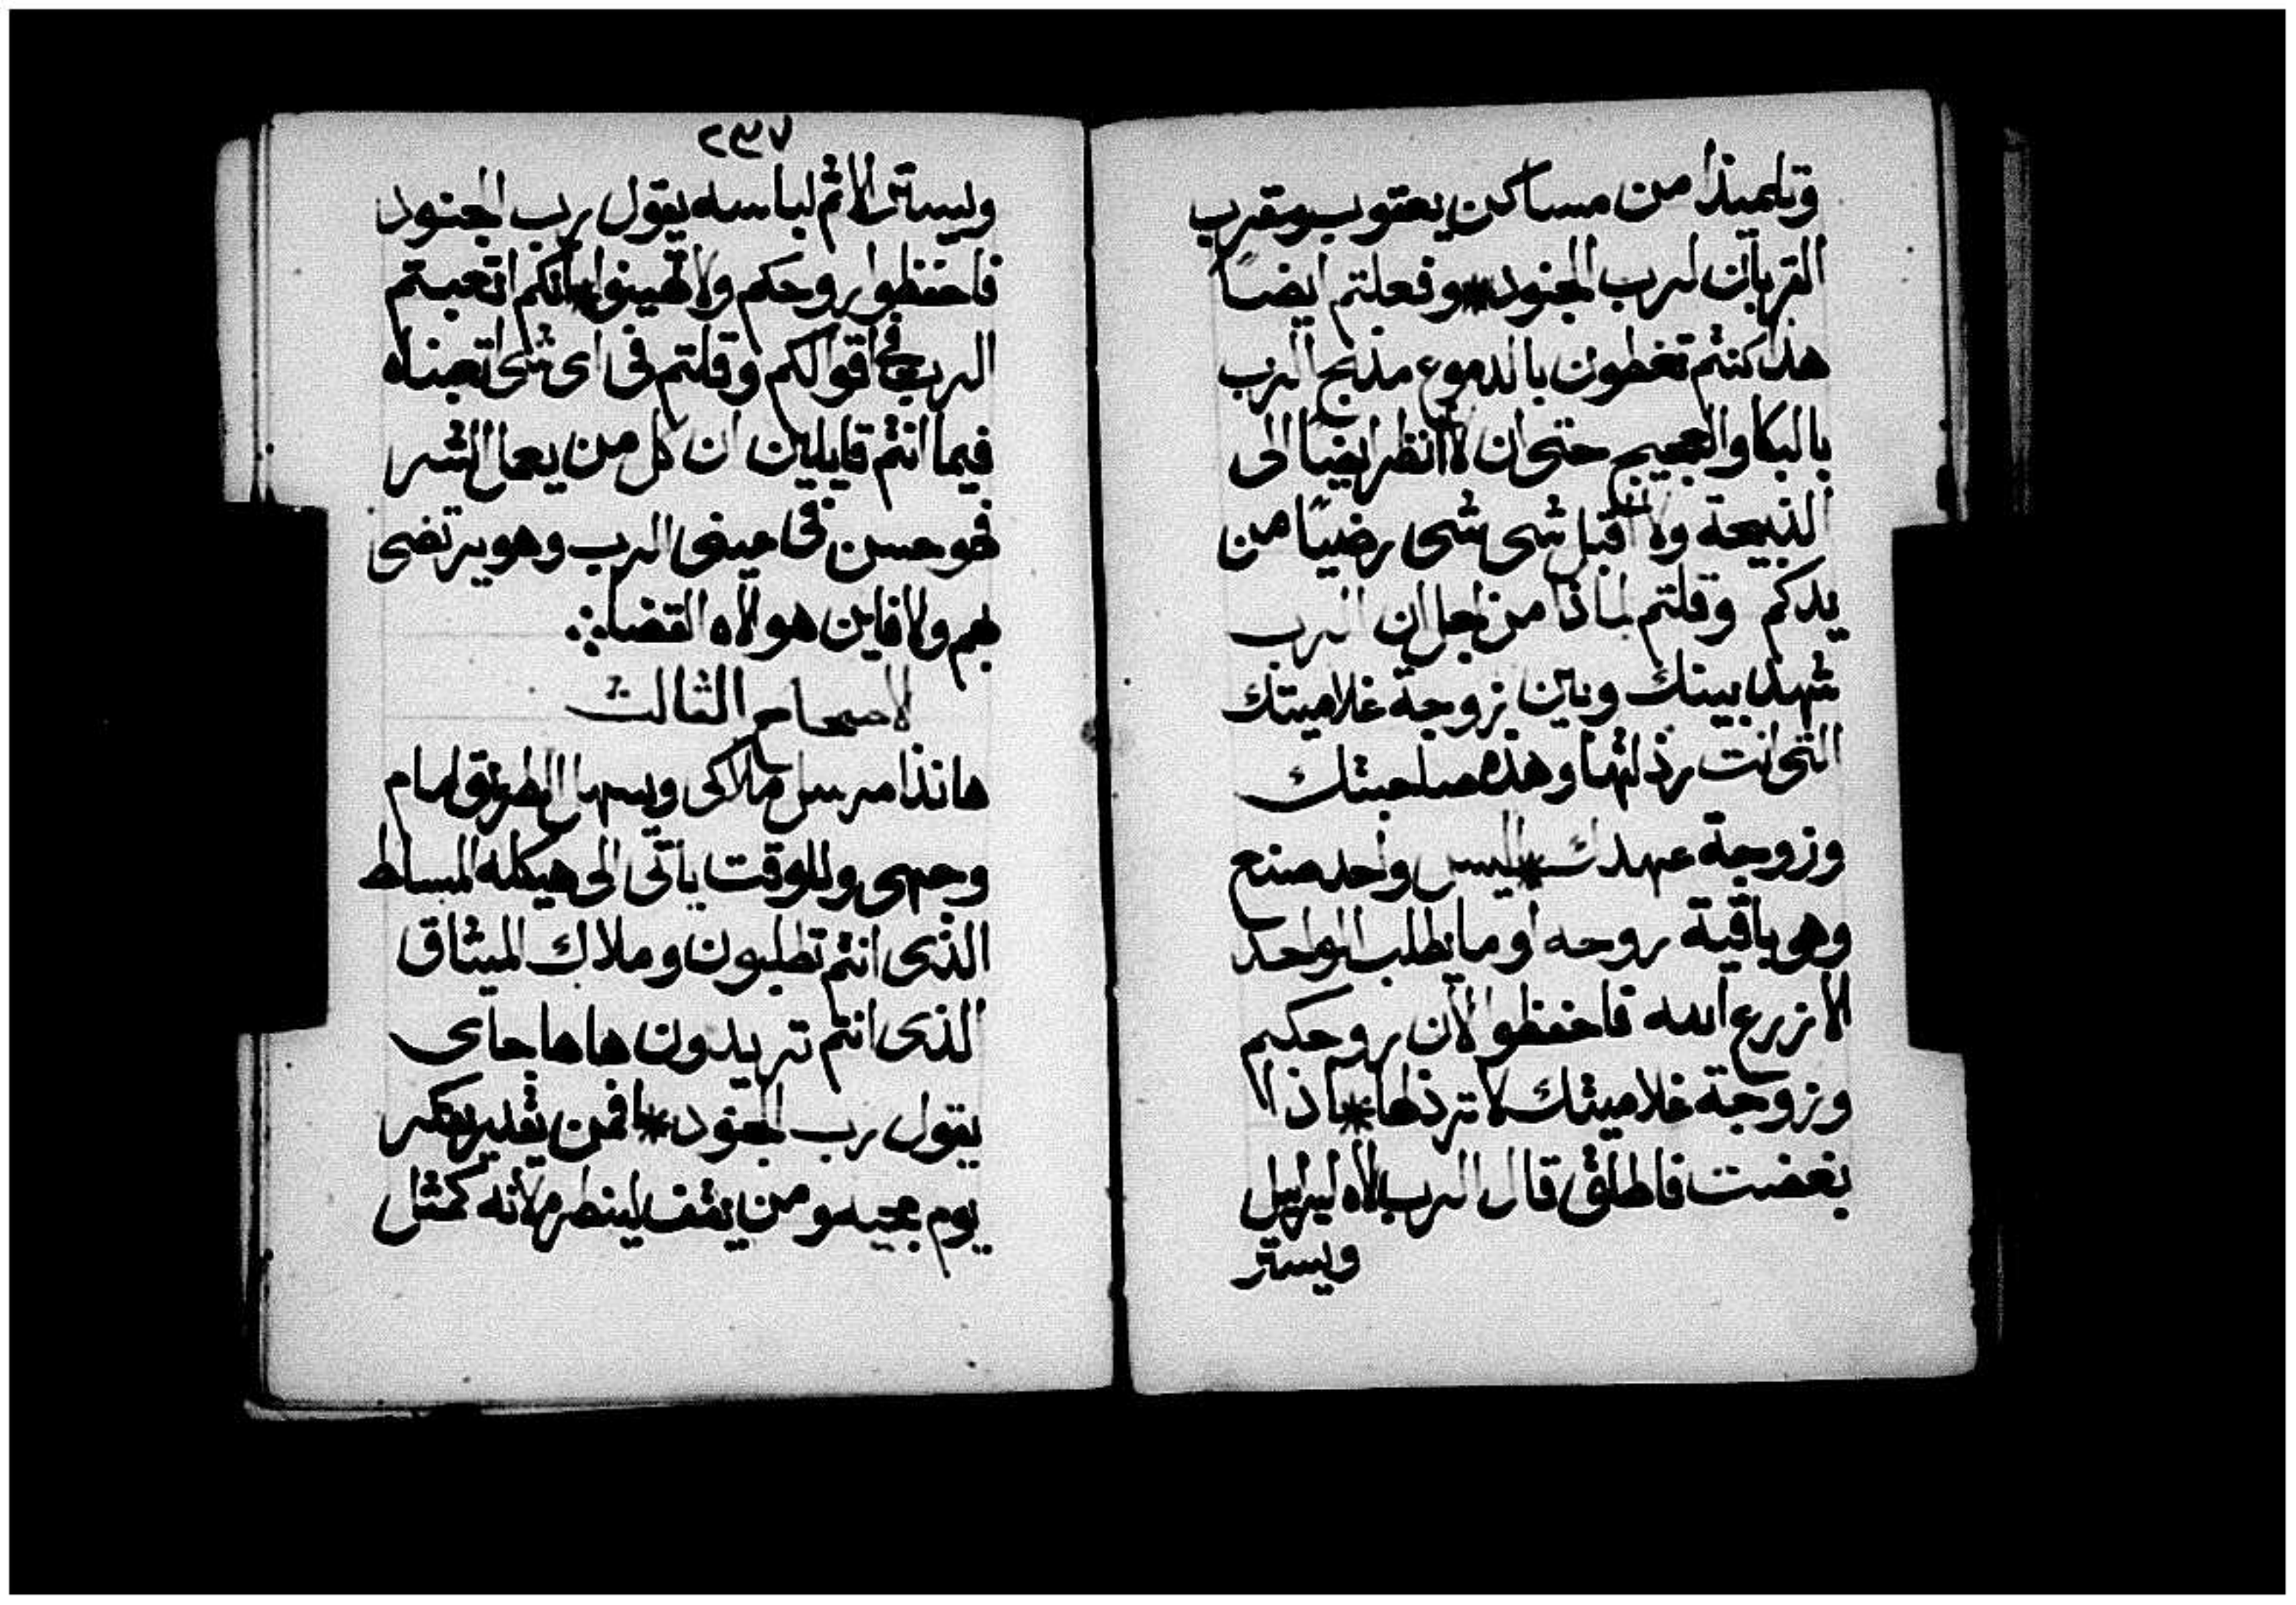 وتلميذا من مساكن يعقوب ومقرب
القربان لرب الجنود * وفعلتم ايضًا
هذا كنتم تغطون بالدموع مذبح الرب
بالبكا والعجيج حتى ان لا انظر ايضًا الى
الذبيحة ولا اقبل شى شى رضيًا من
يدكم وقلتم لماذا من اجل ان الرب
شهد بينك وبين زوجة غلاميتك
التى انت رذلتها وهذه صاحبتك
وزوجة عهدك * اليس واحد صنع
وهو باقية روحه او ما يطلب الواحد
الا زرع الله فاحفظوا الان روحكم
وزوجة غلاميتك لا ترذلها * اذا
بغضت فاطلق قال الرب الاه ليراييل
ويستر
٢٩٧
ويستر الاثم لباسه يقول رب الجنود
فاحفظوا روحكم ولا تهينوا * انكم اتعبتم
الرب فى اقوالكم وقلتم فى اى شى اتعبناه
فيما انتم قايلين ان كل من يعمل الشر
فهو حسن فى عينى الرب وهو يرتضى
بهم ولا فاين هو الاه القضا
الاصحاح الثالث
هانذا مرسل ملاكى ويسهل الطريق امام
وجهى وللوقت ياتى الى هيكله المسلط
الذى انتم تطلبون وملاك الميثاق
الذى انتم تريدون هاها جاى
يقول رب الجنود * فمن يقدير يفكر
يوم مجيه ومن يقف لينظره لانه كمثل